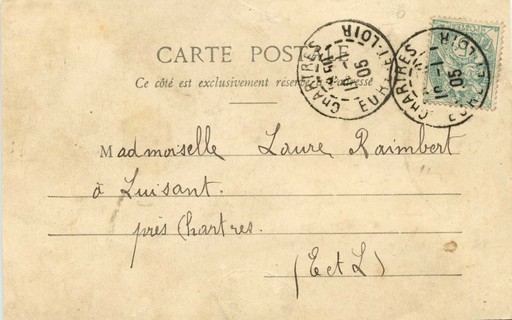 CARTE POSTALE
Ce côté est exclusivement réservé à l'adresse
CHARTRES
EURE-ET-LOIR
05
CHARTRES
EURE-ET-LOIR
05
Madmoiselle Laure Raimbert
à Luisant.
près Chartres.
(E et L)